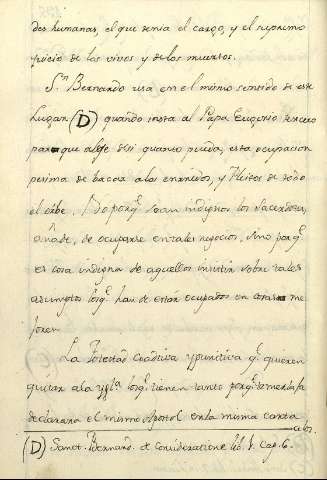 des humanas, el que tenia el cargo, y el supremo
juicio de los vivos y de los muertos.
Sn Bernardo usa en el mismo sentido de este
Lugar (D) quando insta al Papa Eugenio tercero
para que aleje de si quanto pueda, esta ocupacion
pesima de hacia a los enemidos, y Pleitos de todo
el orbe. No porqe sean indignos los sacerdotes,
añade, de ocuparse en tales negocios, sino porqe
es cosa indigna de aquellos insistir sobre tales
asumptos los qe han de estar ocupados en cosas me
jores.
La Potestad Coactiva y punitiva qe quieren
quitar a la Yglª los qe tienen tanto porqe temerla, la
declarara el mismo Apostol en la misma carta
(D) Sanct. Bernard. de Consideratione lib. 1. Cap. 6.